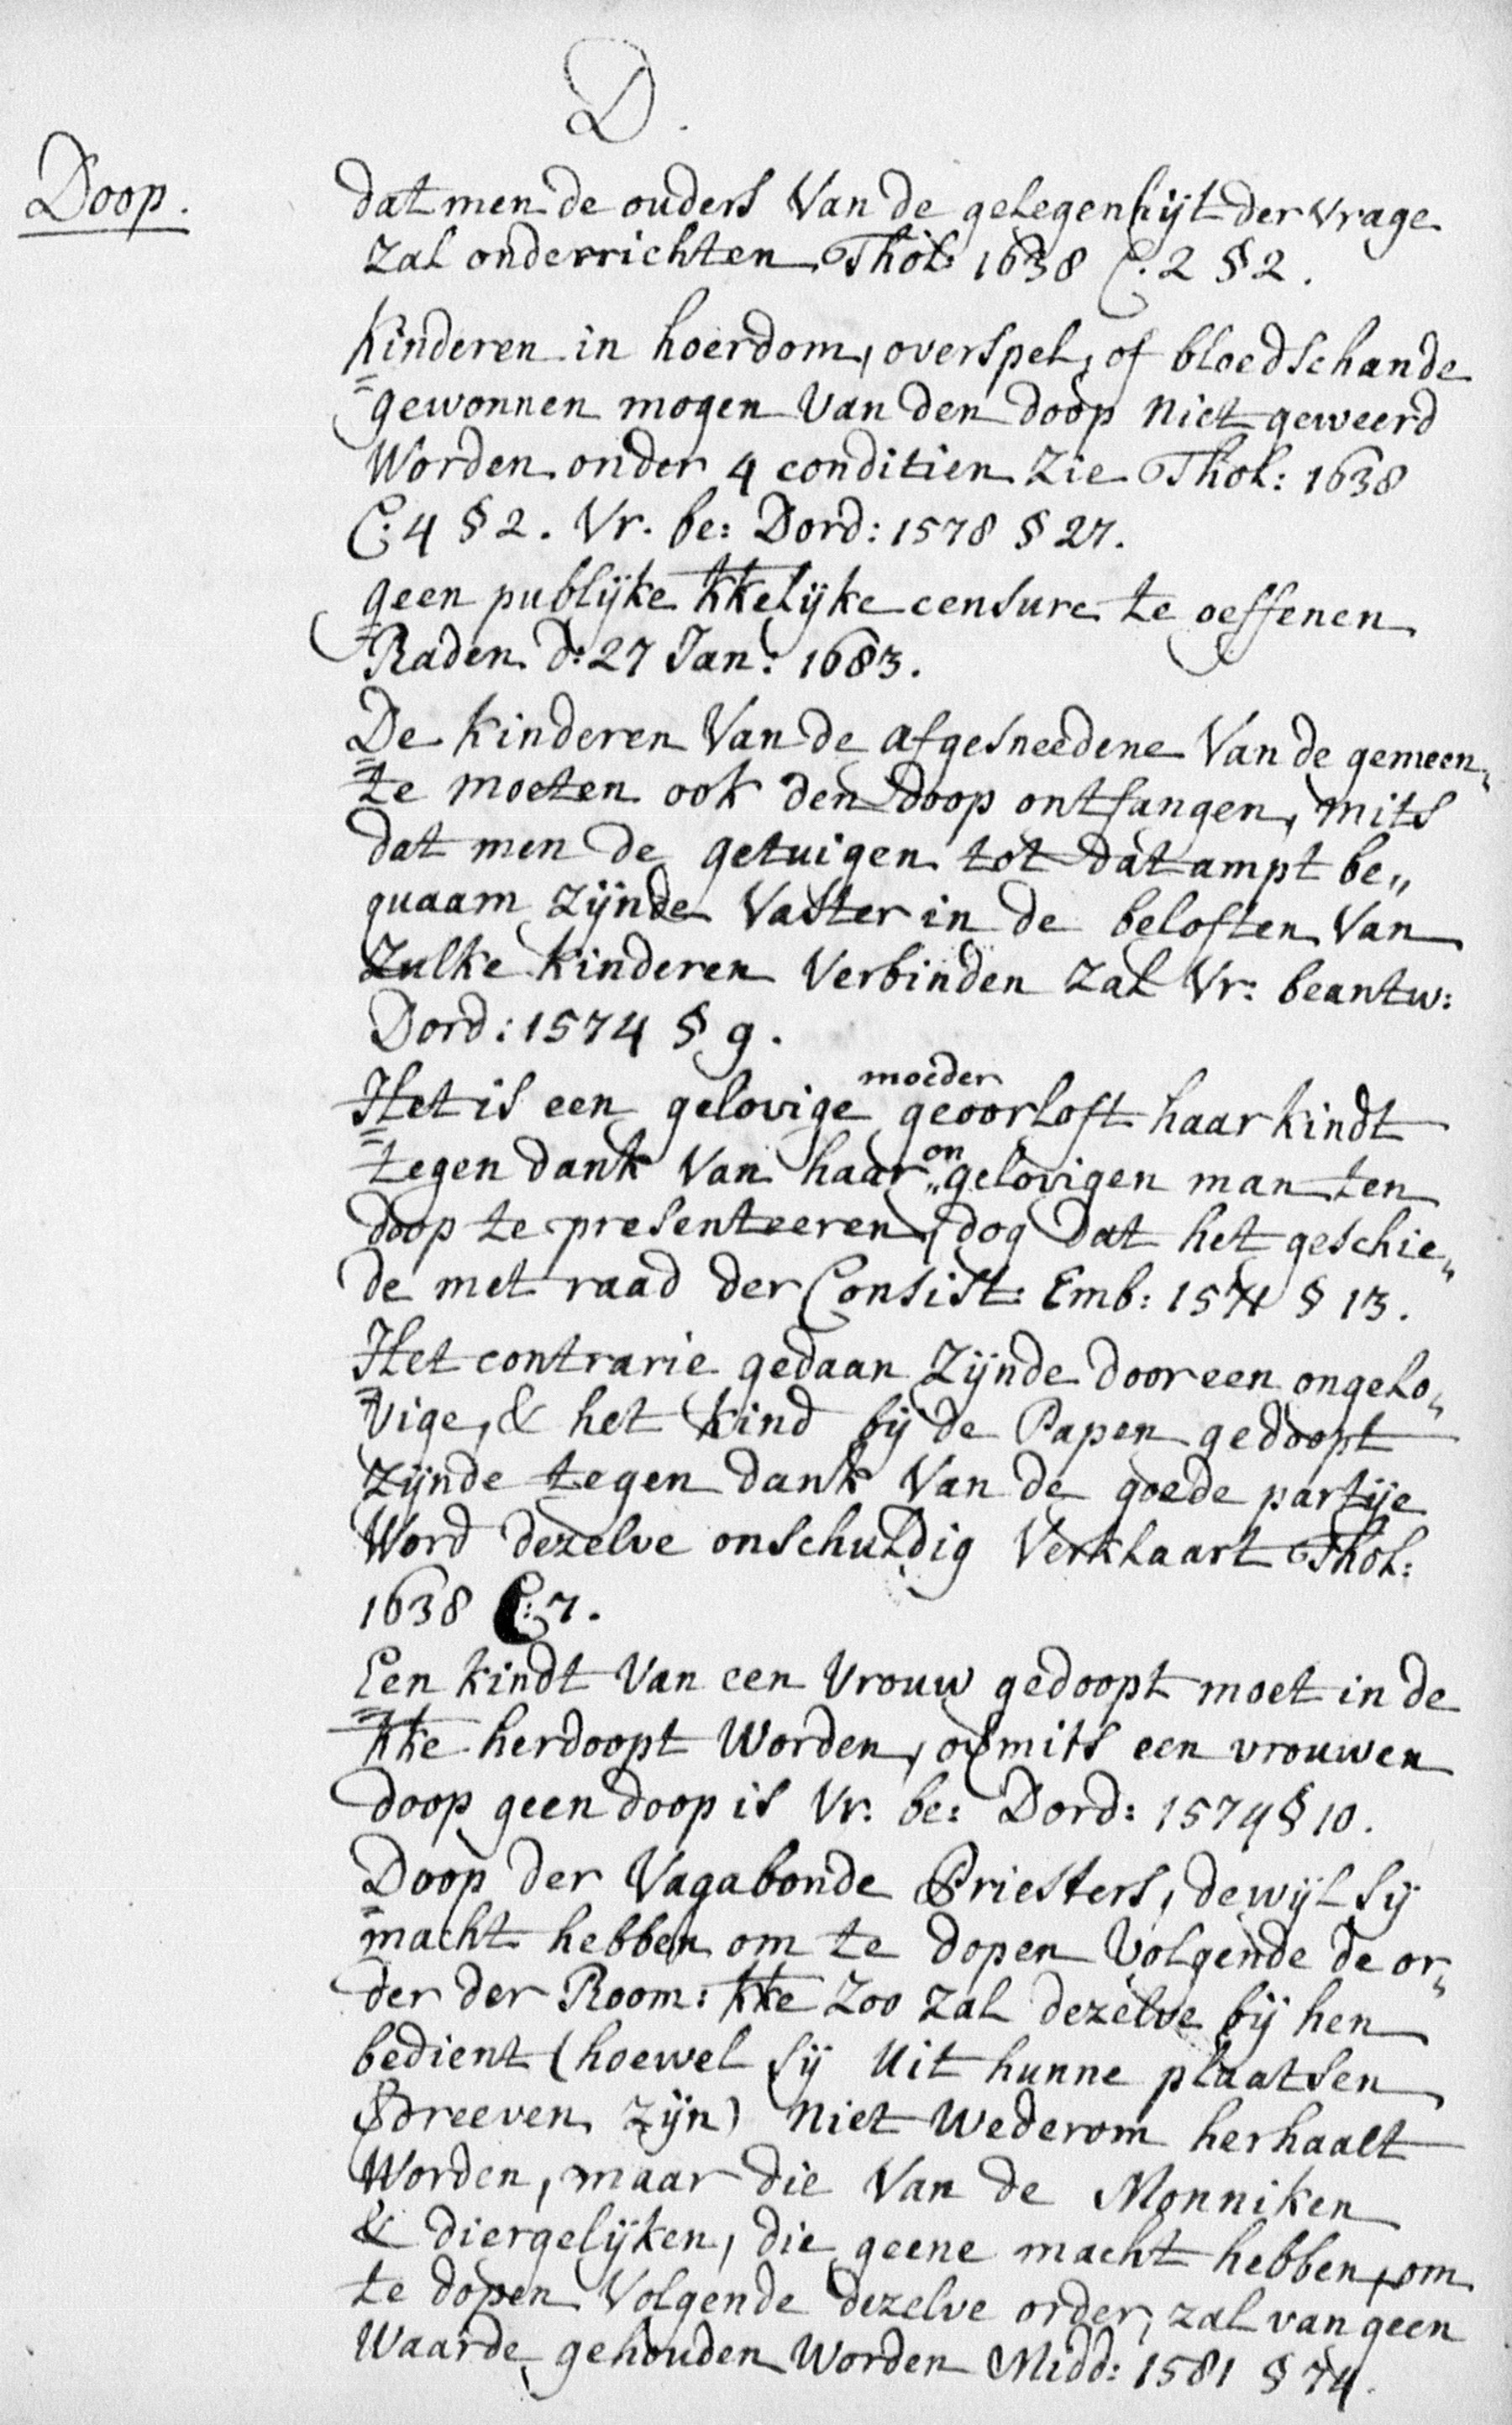 D.
Doop.
dat men de ouders Van de gelegenhijt der vrage
zal onderrichten Thol: 1638 C. 2 § 2.
Kinderen in hoerdom, overspel, of bloedschande
gewonnen mogen Van den doop niet geweerd
Worden onder 4 conditien Zie Thol: 1638
C: 4 § 2. Vr. be: Dord: 1578 § 27.
geen publijke kkelijke censure te oeffenen
Raden. d: 27 Jan: 1683.
De Kinderen Van de afgesneedene Van de gemeen„
te moeten ook den doop ontfangen, mits
dat men de getuigen tot dat ampt be„
quaam zijnde Vaster in de beloften Van
Zulke kinderen Verbinden zal Vr: beantw:
Dord: 1574 § 9.
Het is een gelovige moeder geoorloft haar kindt
tegen dank Van haar on„gelovigen man ten
doop te presenteeren, dog dat het geschie„
de met raad der Consist: Emb: 1571 § 13.
Het contrarie gedaan Zijnde door een ongelo„
vige, & het kind bij de Papen gedoopt
zijnde tegen dank Van de goede partije
Word dezelve onschuldig Verklaart Thol:
1638 C: 7.
Een kindt Van een Vrouw gedoopt moet in de
kke herdoopt Worden, omits een vrouwen
doop geen doop is Vr: be: Dord: 1574 § 10.
Doop der Vagabonde Priesters, dewijl sij
macht hebben om te dopen Volgende de or„
der der Room: kke Zoo zal dezelve bij hen
bedient (hoewel sij Uit hunne plaatsen
dreeven zijn) niet Wederom herhaalt
Worden, maar die Van de Monniken
& diergelijken, die geene macht hebben, om
te dopen Volgende dezelve order, zal van geen
Waarde gehouden Worden Midd: 1581 § 74.